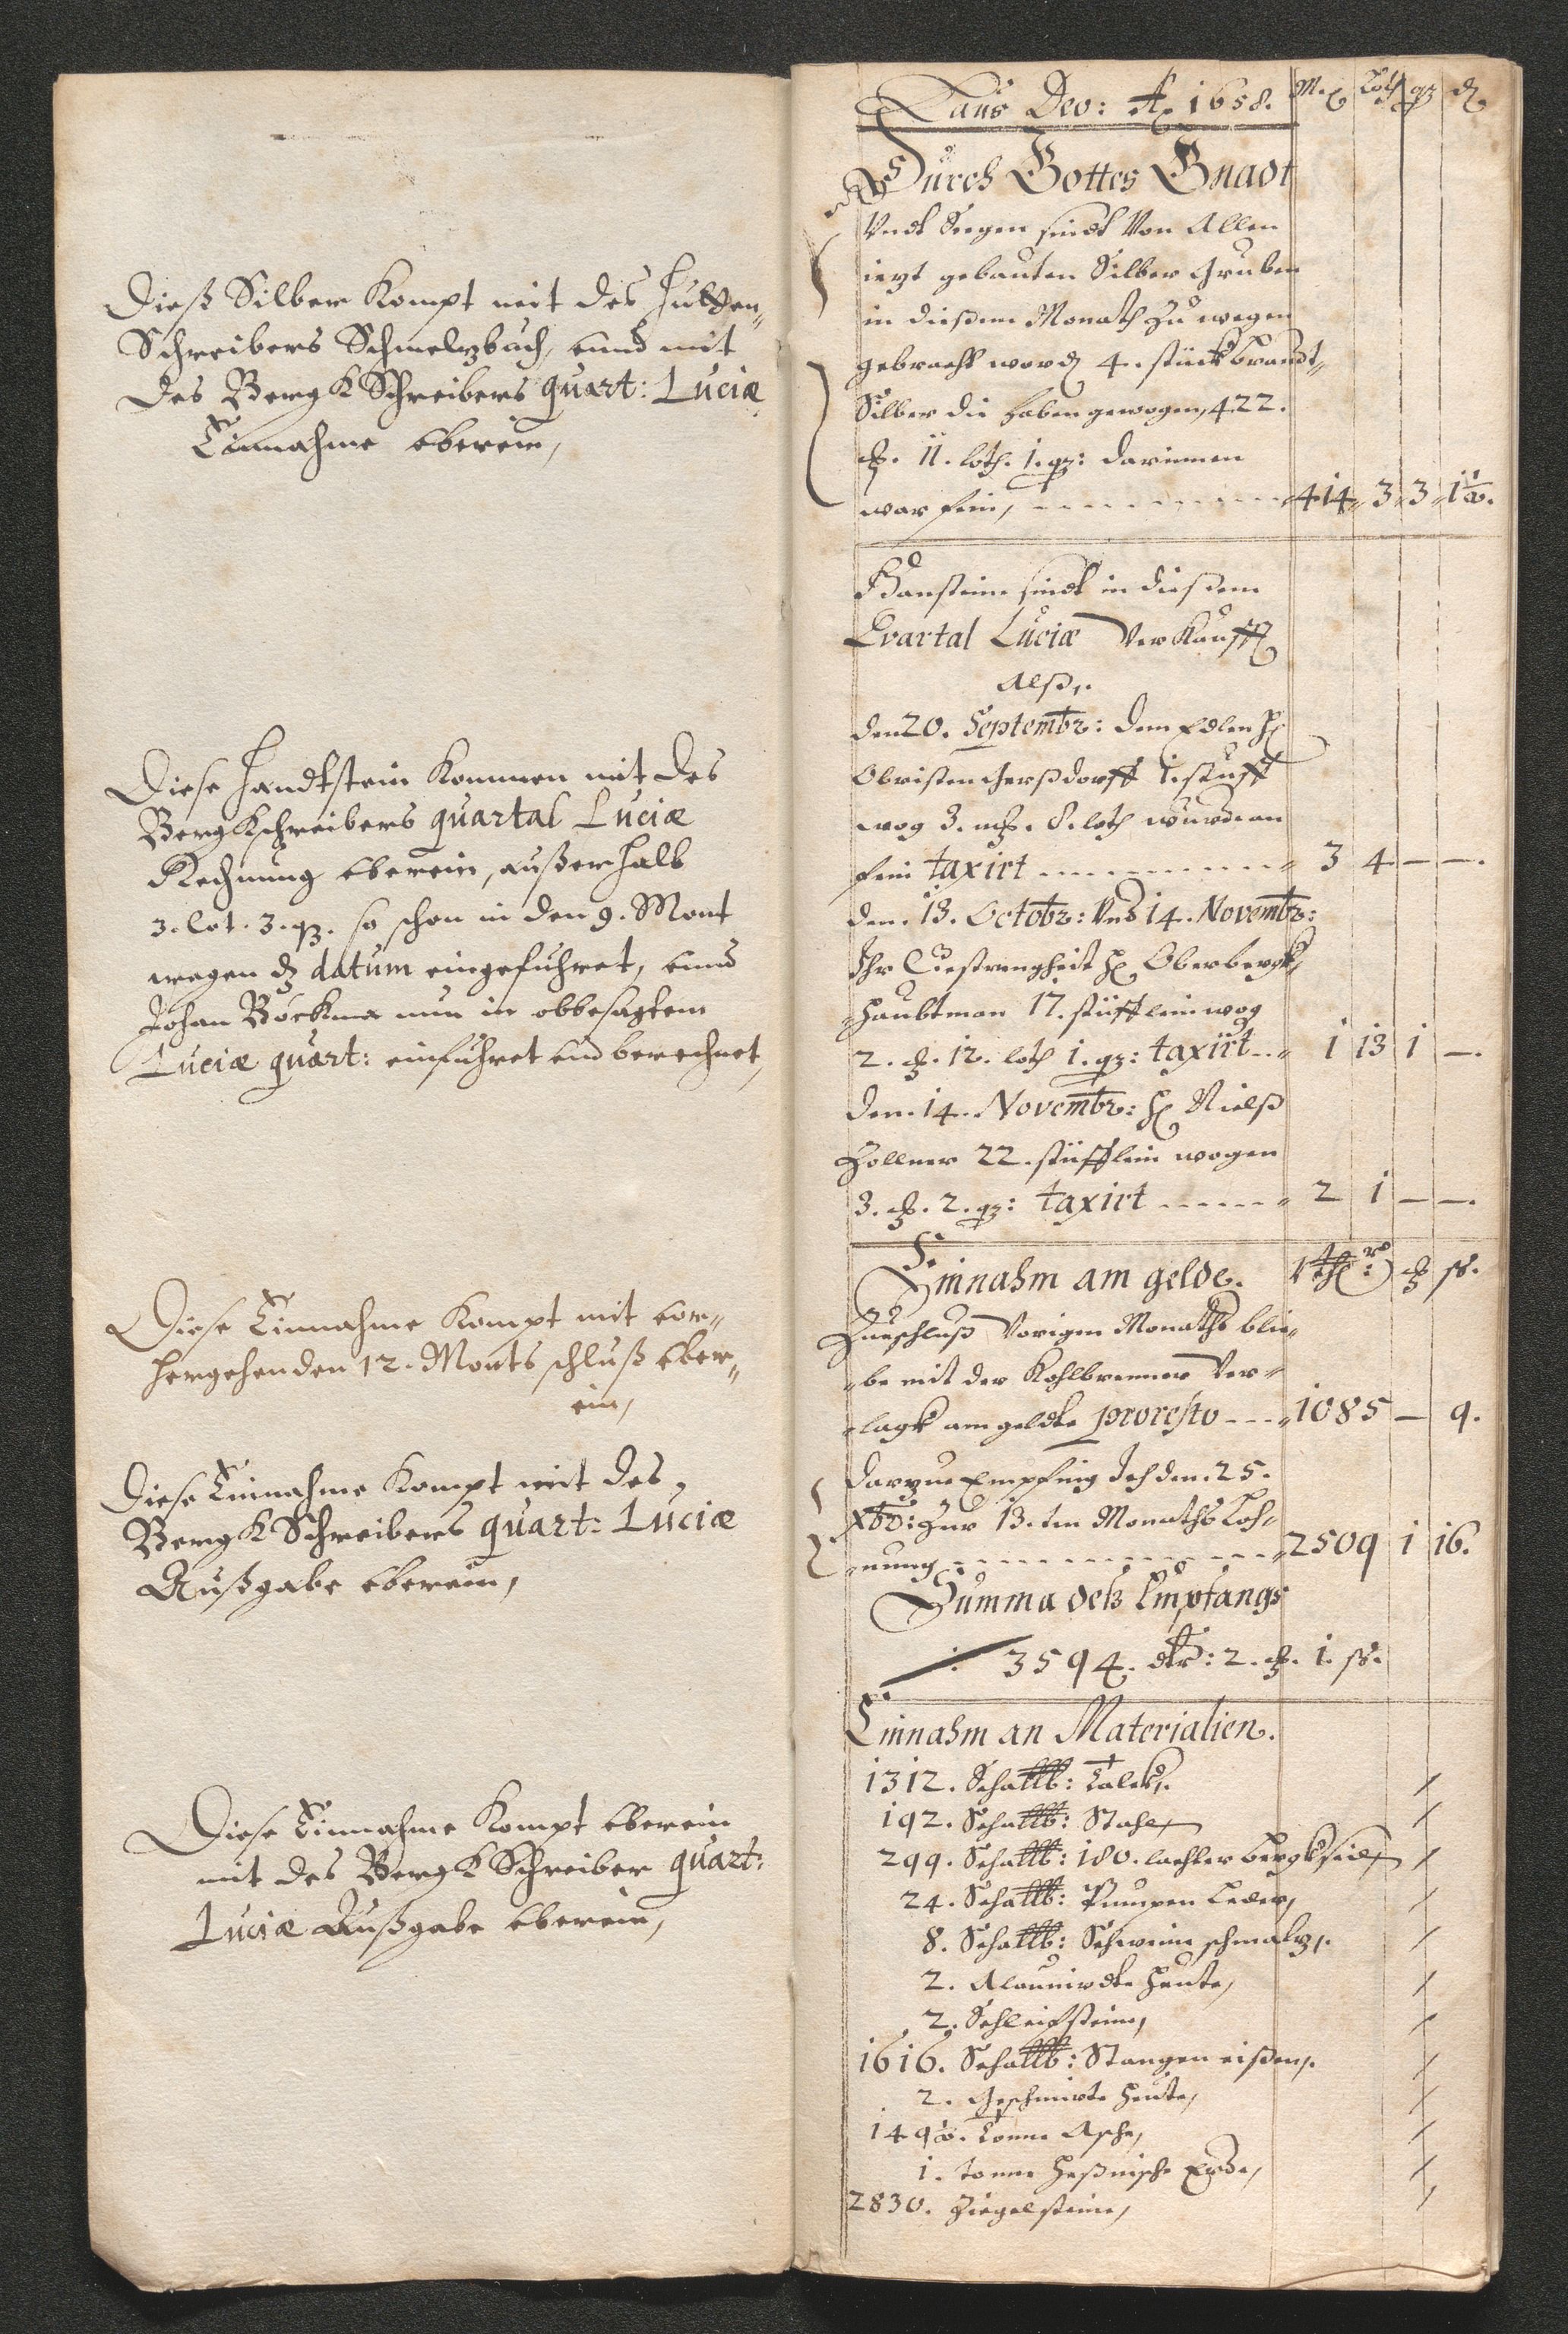 Dieß Silber Kompt mit des Hütten„
Schreibers Schmelzbuch, unnd mit
des BergkSchreibers quart: Luciæ
Einnahme eberein,
Diese Handtstein Kommen mit des
Bergkschreibers quartal Luciæ
Rechnung eberein, außerhalb
3. lot. 3. qz. so schon in den 9. Mont
wegen dz datum eingeführet, unnd
Johan nun in obbesagtem
Luciæ quart: einführet und berechnet,
Diese Einnahme Kompt mit vor„
hergehenden 12. Monts schluß eber„
ein,
Diese Einnahme Kompt mit des
BergkSchreibers quart: Luciæ
Außgabe eberein,
Diese Einnahme Kompt eberein
mit des BergkSchreiber quart:
Luciæ Außgabe eberein,
Laus Deo: Aō 1658. Mk Loth qz d
Durch Gottes Gnadt
Vndt Seegen sindt Von Allen
iezt gebauten Silber Gruben
in dießem Monath zu wegen
gebracht word 4. stück brandt„
Silber die haben gewogen, 422.
mk. 11. loth. 1. qz: darinnen
war fein, 414 3 3 1½.
Handtsteine sindt in dießem
Qvartal Luciæ Verkaufft
Alß,
den 20. Septembr: dem Edlen H
Obristen Gersdorff 1. stuff
wog 3. mk. 8. loth wurde an
fein taxirt 3 4 — —.
den. 13. Octobr: Vnd 14. Novembr:
Ihr Gestrengheit H Oberbergk„
haubtman 17. stüfflein wog
2. mk. 12. loth 1. qz: taxirt 1 13 1 —.
den. 14. Novembr: H Nielß
Zollner 22. stüfflein wogen
3. mk. 2. qz: taxirt 2 1 — —.
Einnahm am gelde. Rthlr: mk ß.
Zueschluß Vorigen Monaths blie„
„be mit der Kohlbrenner Ver„
„lagk am geldte proresto 1085 — 9.
darzue Empfing Ich den. 25.
Xbr: Zur 13.ten Monaths Loh„
„nung 2509 1 16.
Summa deß Empfangs
3594. dlr: 2. mk. 1. ß.
Einnahm an Materialien.
1312. Schallb: Talck,
192. Schallb: Stahl,
299. Schallb: 180. lachter bergkseil,
24. Schallb: Pumpen Leder,
8. Schallb: Schweine schmalz,
2. Alaunirdte heute,
2. Schleifsteine,
1616. Schallb: Stangen eißen,
2. Geschmirte heute,
149½. Tonne Asche,
1. tonne Heßnische Erde,
2830. Ziegelsteine,